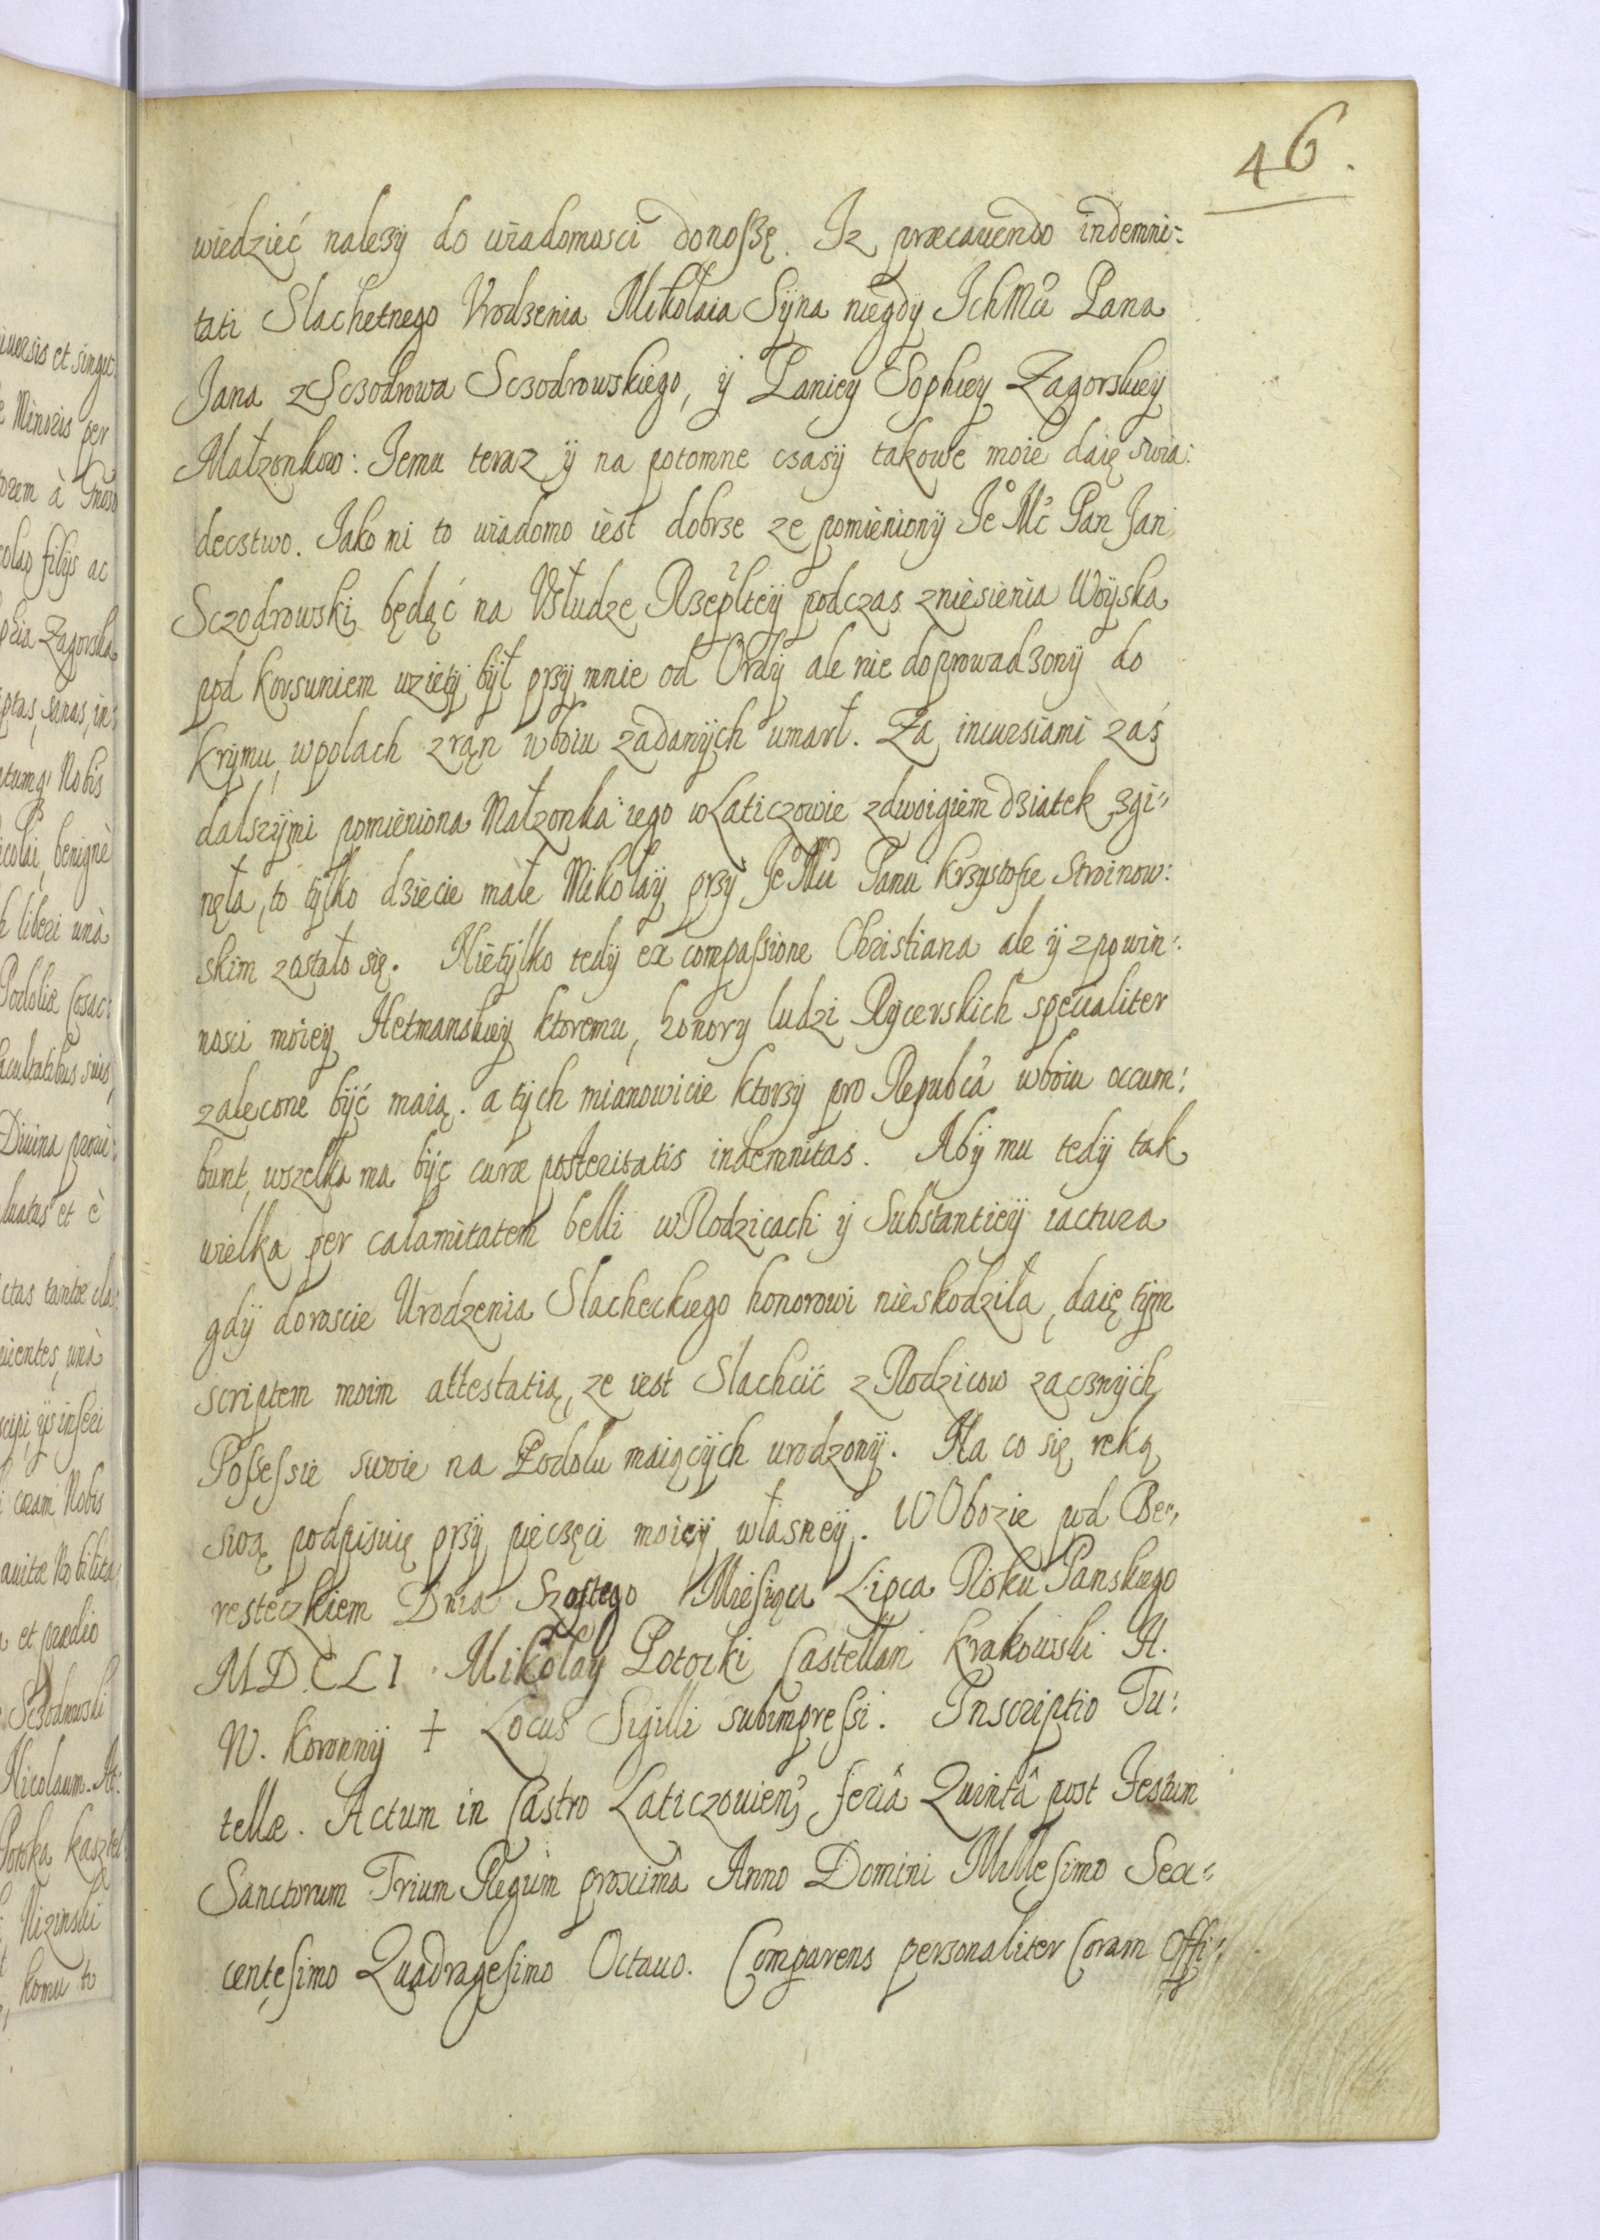 46.
wiedzieć nalezÿ do wiadomosci donoszę. Iz præcauendo indemni=
tati Slachetnego Vrodzenia Mikołaia Sÿna niegdÿ IchMći Pana
Jana z Sczodrowa Sczodrowskiego, ÿ Paniey Sophiey Zagorskieÿ
Małzonkow: Iemu teraz ÿ na potomne czasÿ takowe moie daię swia:
decstwo. Iako mi to wiadomo iest dobrze ze pomienionÿ Ie° Mć Pan Jan
Sczodrowski będąć na Vsłudze Rzepltey podczas zniesienia Woÿska
pod Korsuniem wziętÿ bÿł przÿ mnie od Ordÿ ale nie doprowadzonÿ do
Krÿmu, w polach z ran w boiu zadanÿch umarł. Za incursiami zaś
dalszÿmi pomieniona Małzonka iego w Laticzowie z dwoigiem dziatek zgi=
nęła, to tÿlko dziecie małe Mikołaÿ przÿ Ie°Mći Panu Krzysztofie Stroinow:
skim zastało się. Nietÿlko tedÿ ex compassione Christiana ale ÿ z powin:
nosci moieÿ Hetmanskieÿ ktoremu, honory ludzi Rycerskich specialiter
zalecone bÿć maią. a tÿch mianowicie ktorzÿ pro Republca w boiu occum:
bunt, wszelka ma bÿc curæ posteritatis indemnitas. Abÿ mu tedÿ tak
wielka per calamitatem belli w Rodzicach ÿ Substantieÿ iactura
gdÿ doroscie Urodzenia Slacheckiego honorowi nieskodziła, daię tÿm
scriptem moim attestatią, ze iest Slachcić z Rodzicow zacznÿch
Possessie swoie na Podolu maiącÿch urodzonÿ. Na co się ręką
swą podpisuię przÿ pieczęci moieÿ własneÿ. W Obozie pod Be=
resteczkiem Dnia Szostego Miesiąca Lipca Roku Panskiego
MDCLI. Mikołaÿ Potocki Castellan Krakowski H.
W. Koronnÿ + Locus Sigilli subimpressi. Inscriptio Tu:
tellæ. Actum in Castro Laticzouien, feriâ Quintâ post Festum
Sanctorum Trium Regum proxima Anno Domini Millesimo Sex=
centesimo Quadragesimo Octauo. Comparens personaliter Coram Offi:
iuersis et singu
Minoris per
colao filÿs ac
Zagorska
Nobis
icolai, benignè
liberi unà
Podoliæ Cosac:
acultatibus suis,
Diuina
luatus et è
uientes, unà
inseri
coram Nobis
auitæ Nobilita
et prædio
Sczodrowski
Nicolaum
Kasztel
Nizinski
komu to